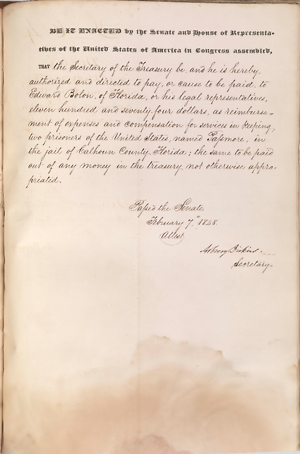 BE IT ENACTED by the Senate and House of Representa-
tives of the United States of America in Congress assembled,
THAT the Secretary of the Treasury be, and he is hereby,
authorized and directed to pay, or cause to be paid, to
Edward Bolon, of Florida, or his legal representatives,
eleven hundred and seventy four dollars, as reimburse-
ment of expenses and compensation for services in keeping,
two prisoners of the United States, named Passmore, in
the jail of Calhoun County, Florida; the same to be paid
out of any money in the treasury not otherwise appro-
priated.
Passed the Senate
February 7th 1848.
Attest
Asbury Dickins
Secretary.